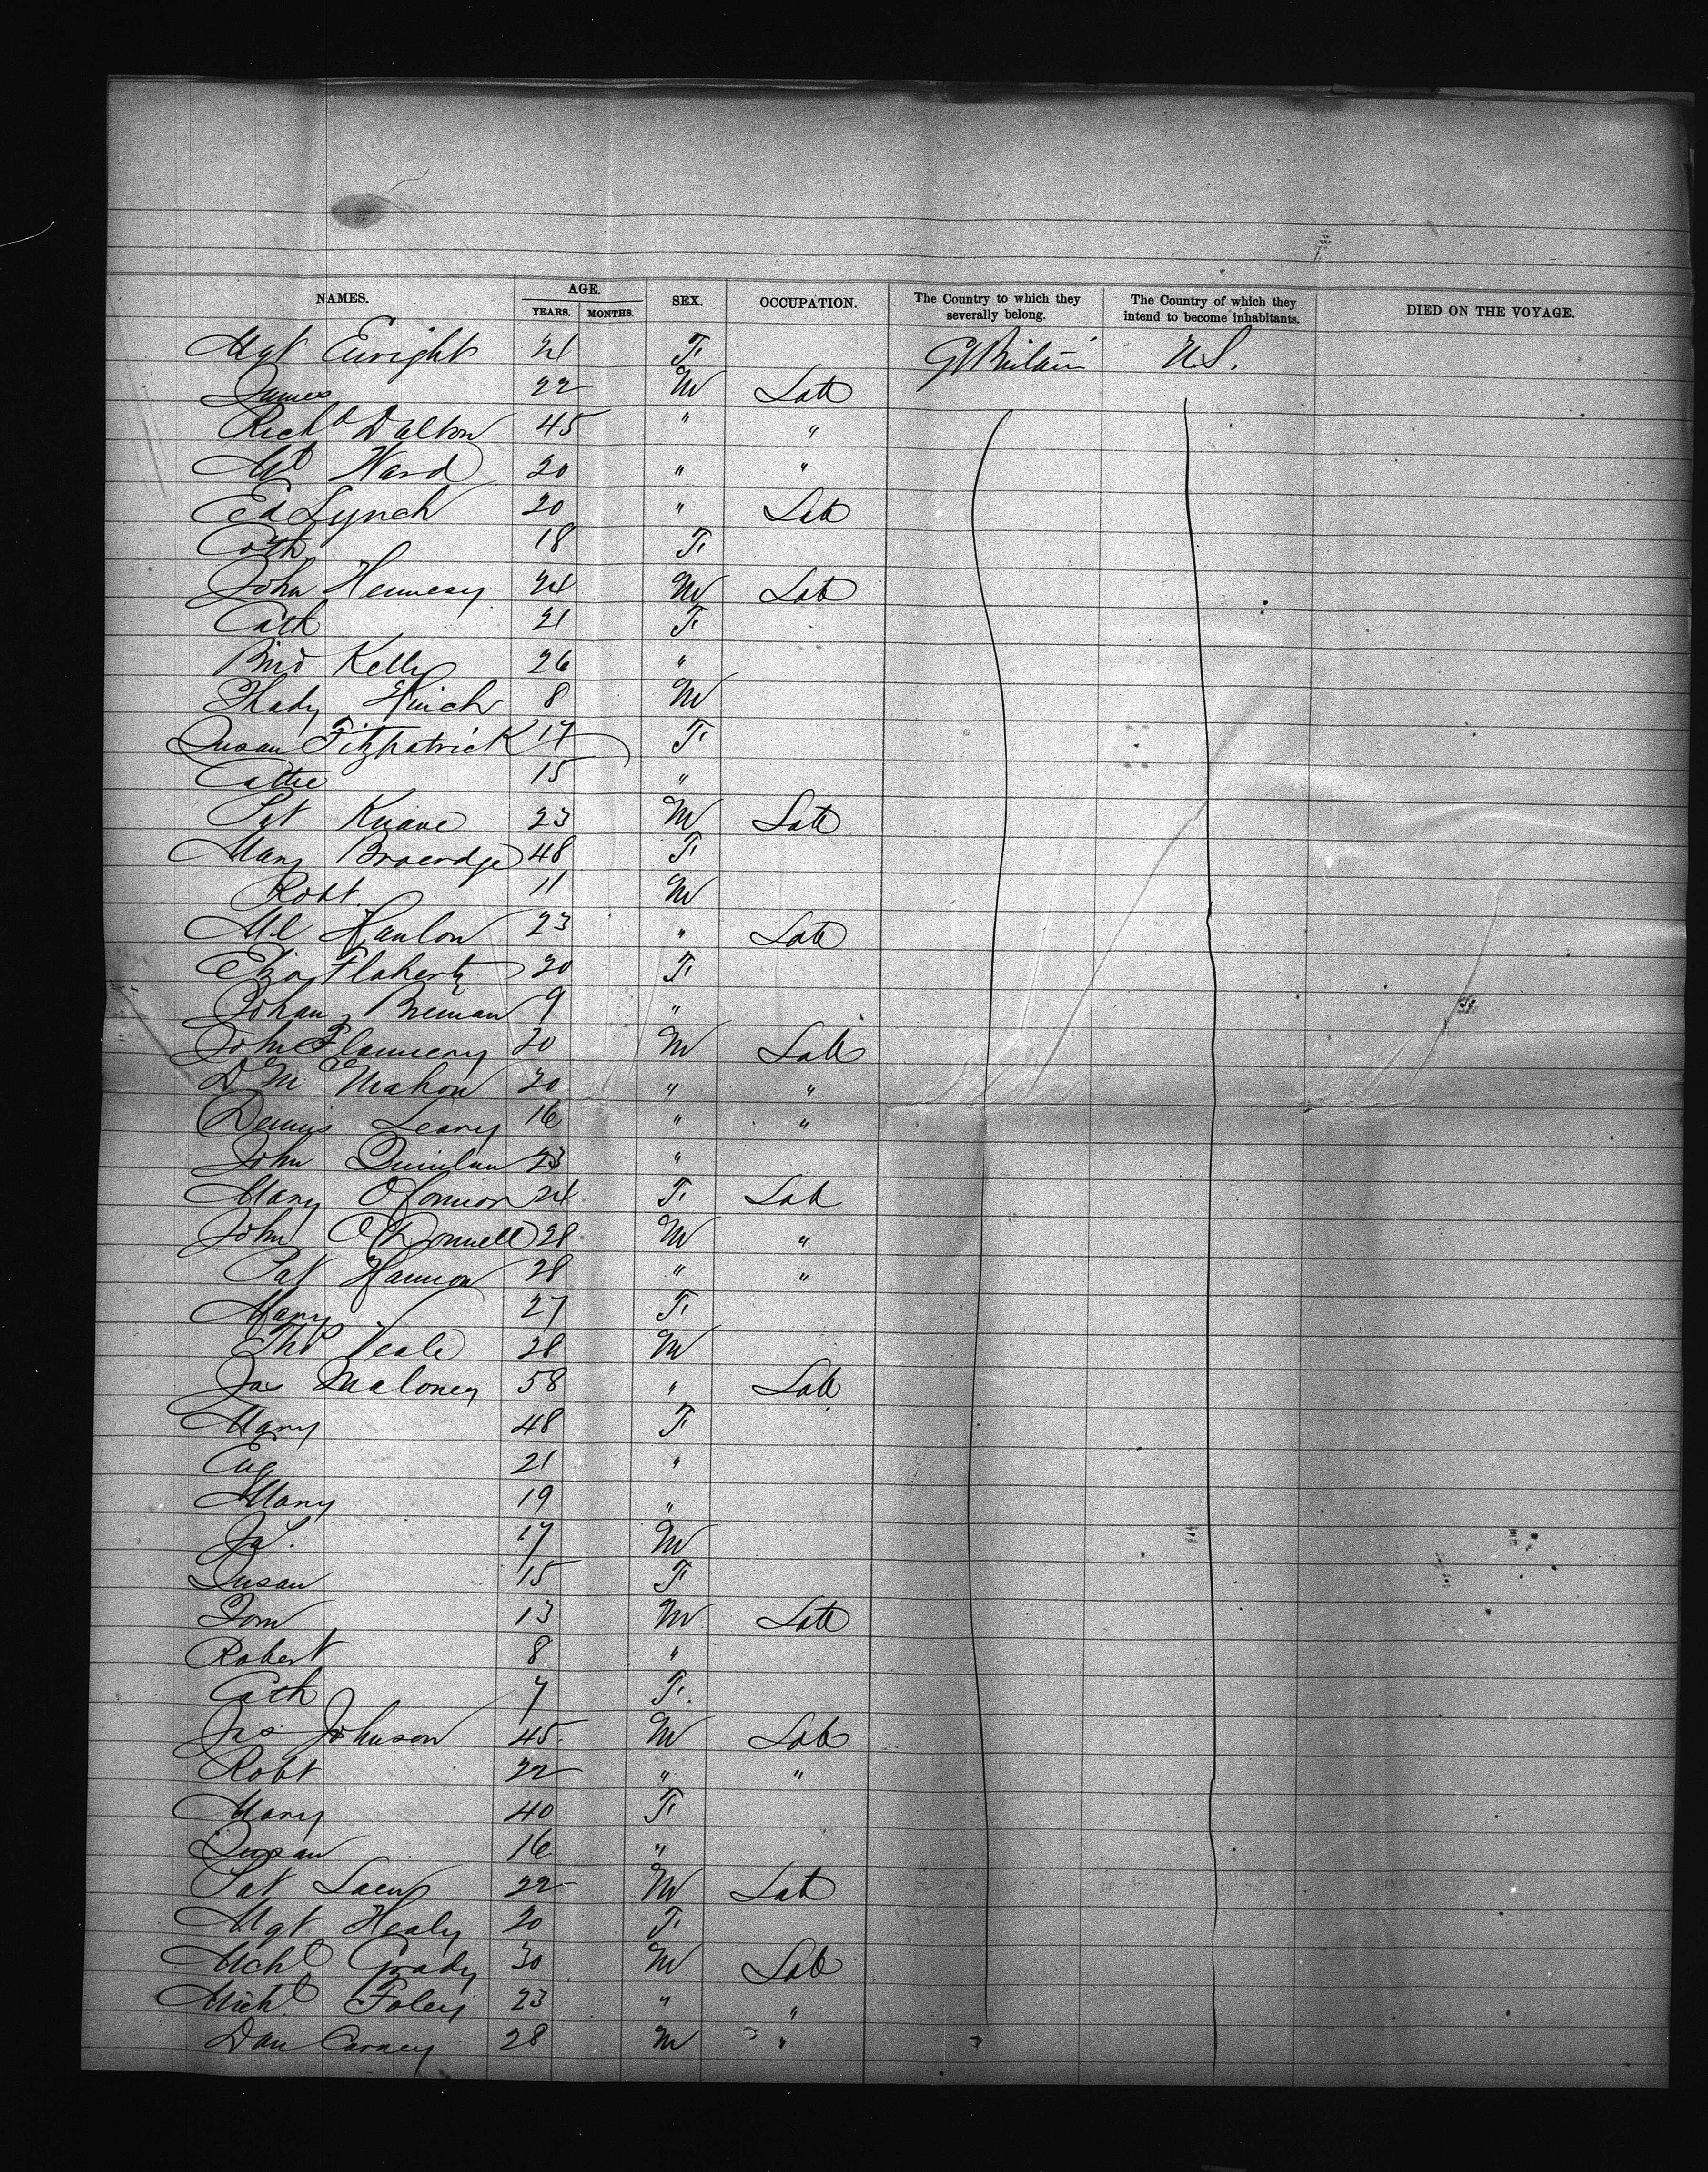 NAMES. AGE. SEX. OCCUPATION. The Country to which they severally belong. The Country of which they intend to become inhabitants. DIED ON THE VOYAGE.
YEARS. MONTHS.
Mgt Enright 21 F. Gt Britain U.S.
James 22 M Lab
Richd Dalton 45 " "
Ml Ward 20 " "
Ed Lynch 20 " Lab
Cath 18 F.
John Hennesy 24 M Lab
Cath 21 F.
Brid Kelly 26 "
Thady Hinch 8 M
Susan Fitzpatrick 17 F.
Cattie 15 "
Pat Knave 23 M Lab
Mary 48 F.
Robt. 11 M
Ml Hanlon 23 " Lab
Eliza Flaherty 20 F.
Johan Breman 9 "
John Flannery 20 M Lab
D Mc Mahon 20 " "
Dennis Leary 16 " "
John Quinlan 23 "
Mary O'Connor 24 F. Lab
John O'Donnell 28 M "
Pat Hannon 28 " "
Mary 27 F.
Thos Veale 28 M
Jas Maloney 58 " Lab
Mary 48 F.
21 "
Mary 19 "
Jas. 17 M
Susan 15 F
Tom 13 M Lab
Robert 8 "
Cath 7 F.
Jas Johnson 45 M Lab
Robt 22 " "
Mary 40 F.
Susan 16 "
Pat 22 M Lab
Mgt Healy 20 F.
Michl Grady 30 M Lab
Michl Foley 23 " "
Dan Carney 28 M "